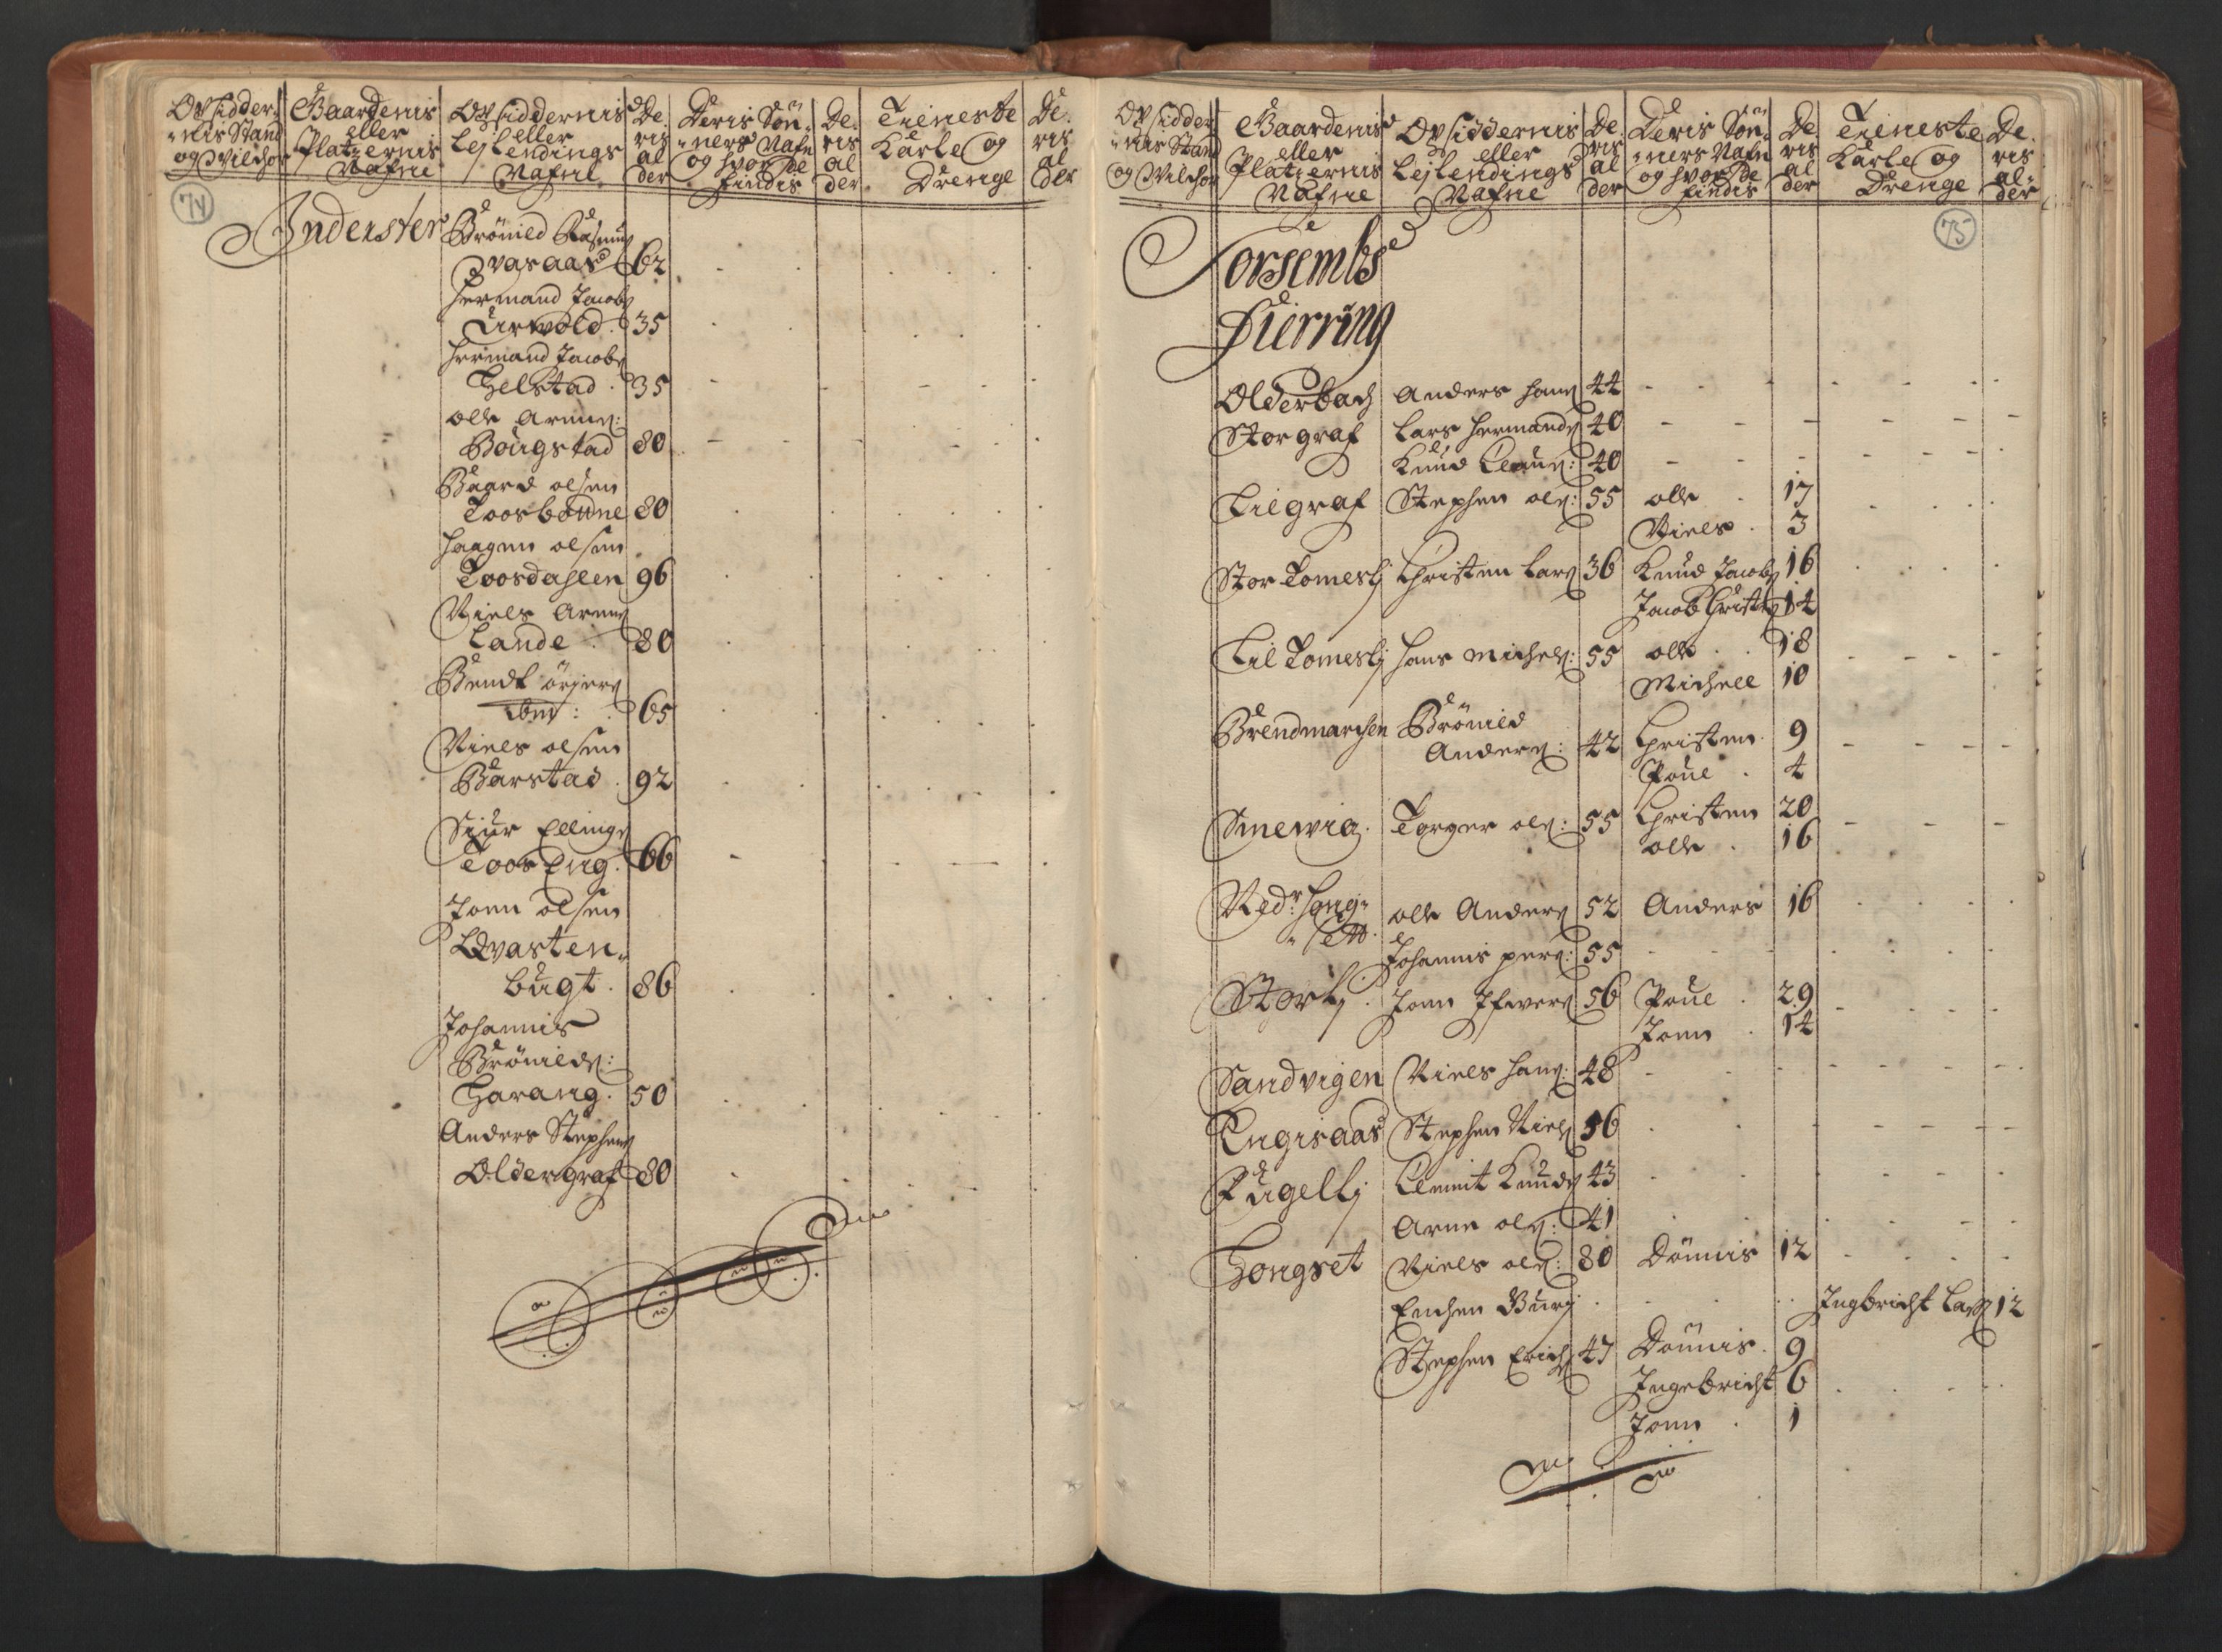 Opsidder-
nis Stand
og Vilchor
Gaardenis
eller
Platzernis
Nafne
Opsiddernis
eller
Lejlendings
Nafne
De
ris
al
der
Deris Søn-
ners Nafn
og hvor de
findis
De
ris
al
der
Tieneste
Karle og
Drenge
De
ris
al
der
74
Inderster
Brönild Rasmus
Qvasaas 62
Hermand Jacobs
Urwold 35
Hermand Jacobs
Helstad 35
Olle Arnes:
Bougstad 80
Baard Olsen
Toosbotne 80
Haagen Olsen
Toosdahlen 96
Niels Arnes
Lande 80
Bendt
ibm: 65
Niels Olsen
Barstad 92
Siur Ellings
Toos Eng 66
Joen Olsen
Qvasten-
bugt 86
Johannis
Brönilds:
Harang 50
Anders Stephens
Oldergraf 80
Opsidder
nis Stand
og Vilchor
Gaardenis
eller
Platzernis
Nafne
Opsiddernis
eller
Lejlendings
Nafne
De
ris
al
der
Deris Søn-
ners Nafn
og hvor de
findis
De
ris
al
der
Tieneste
Karle og
Drenge
De
ris
al-
der
75
Torsembs
Fierring
Olderbach Anders Hans 44
Storgraf Lars Hermands 40
Knud Claus: 40
Lilgraf Stephen Ols: 55 Olle 17
Niels 3
Stor Tomeslj Christen Lars 36 Knud Jacobs 16
Jacob Christens 14
Lil Tomeslj Hans Michels: 55 Olle 18
Michell 10
Brendmarchen Brönild
Anders: 42 Christen 9
Poul 4
Smewig Torger Ols: 55 Christen 20
Olle 16
Nedr Hong-
sett Olle Anders 52 Anders 16
Johannis Pers: 55
Storlj Joen Ifwers 56 Poul 29
Joen 14
Sandvigen Niels Hans: 48
Engisaas Stephen Niels 56
Fugellj Clemit Knuds 43
Arne Ols: 41
Hongset Niels Ols: 80 Dönnis 12
Enchen Burg Ingbricht Lars 12
Stephen Erichs 47 Dönnis 9
Ingebricht 6
Joen 1